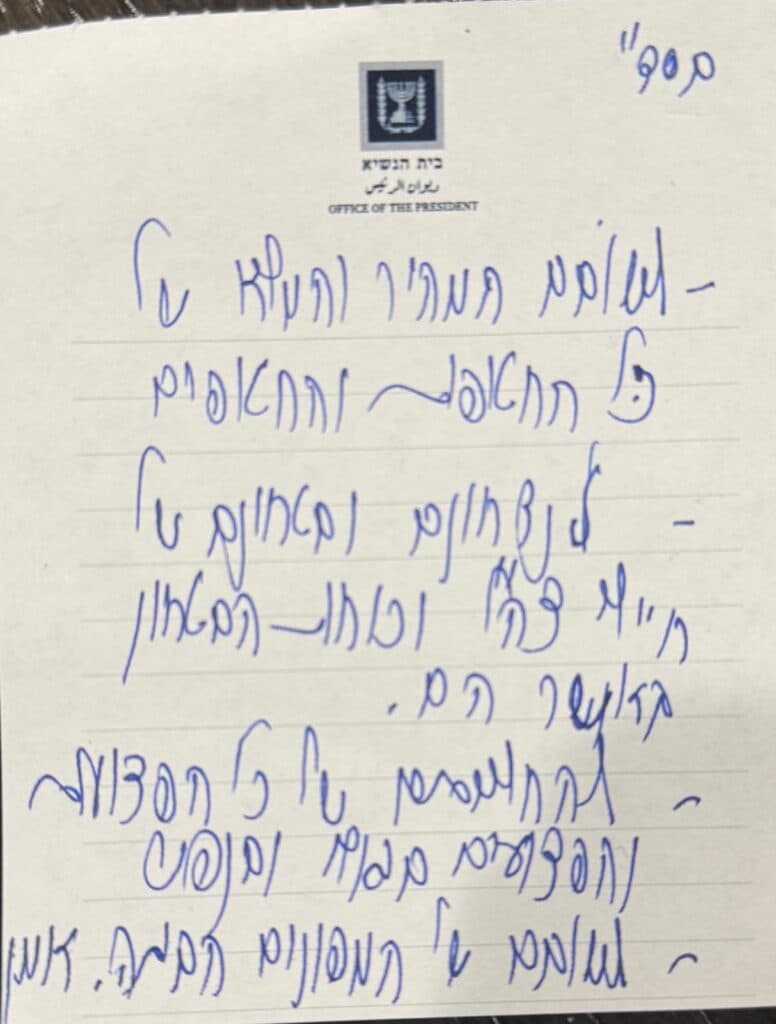 בסד"
בית הנשיא
ديوان الرئيس
OFFICE OF THE PRESIDENT
- לשובם המהיר והשלם של
כל החטופות והחטופים
- לנצחונם ובטחונם של
חיילי צה"ל וכוחות הבטחון
באשר הם.
- להחלמתם של כל הפצועות
והפצועים בגוף ובנפש
- לשובם של המפונים הביתה. אמן